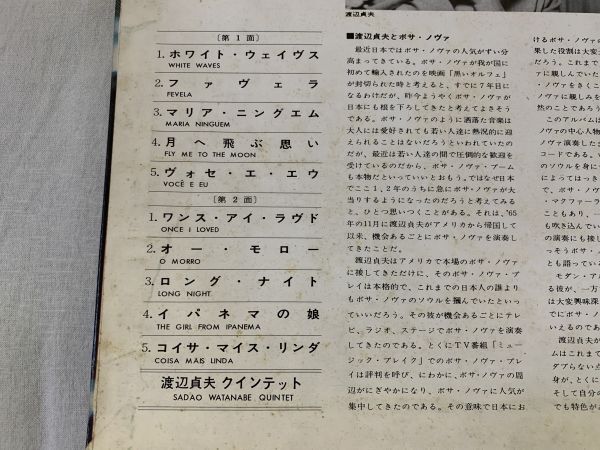 〔第1面〕
1. ホワイト・ウェイヴス
WHITE WAVES
2. ファヴェラ
FEVELA
3. マリア・ニングエム
MARIA NINGUEM
4. 月へ飛ぶ思い
FLY ME TO THE MOON
5. ヴォセ・エ・エウ
VOCÊ E EU
〔第2面〕
1. ワンス・アイ・ラヴド
ONCE I LOVED
2. オー・モロー
O MORRO
3. ロング・ナイト
LONG NIGHT
4. イパネマの娘
THE GIRL FROM IPANEMA
5. コイサ・マイス・リンダ
COISA MAIS LINDA
渡辺貞夫 クインテット
SADAO WATANABE QUINTET
渡辺貞夫
■渡辺貞夫とボサ・ノヴァ
最近日本ではボサ・ノヴァの人気がずい分
高まってきている。ボサ・ノヴァが我が国に
初めて輸入されたのを映画「黒いオルフェ」
が封切られた時と考えると、すでに7年目に
なるわけだが、昨今ようやくボサ・ノヴァが
日本にも根を下ろしてきたと考えてよさそう
である。ボサ・ノヴァのように洒落た音楽は
大人には愛好されても若い人達に熱況的に迎
えられることはないだろうといわれていたの
だが、最近は若い人達の間で圧倒的な歓迎を
受けているのだから、ボサ・ノヴァ・ブーム
も本物だといっていいとおもう。ではなぜ日本
でここ1、2年のうちに急にボサ・ノヴァが大
当りするようになったのだろうと考えてみる
と、ひとつ思いつくことがある。それは、'65
年の11月に渡辺貞夫がアメリカから帰国して
以来、機会あるごとにボサ・ノヴァを演奏し
てきたことだ。
渡辺貞夫はアメリカで本場のボサ・ノヴァ
に接してきただけに、そのボサ・ノヴァ・プ
レイは本格的で、これまでの日本人の誰より
もボサ・ノヴァのソウルを摑んでいたといっ
ていいだろう。その彼が機会あるごとにテレ
ビ、ラジオ、ステージでボサ・ノヴァを演奏
してきたのである。とくにTV番組「ミュー
ジック・ブレイク」でのボサ・ノヴァ・プレ
イは評判を呼び、にわかに、ボサ・ノヴァの周
辺がにぎやかになり、ボサ・ノヴァに人気が
集中してきたのである。その意味で日本にお
けるボサ・ノヴ
果した役割は大変
だろう。これまで
ァに親しんでいた
・ノヴァをきくこ
ノヴァに親しみを
然のことであろ
このアルバムは
ノヴァの中心人物
ノヴァ演奏した
コードである。
のソウルを身に
によってはっき
で、ボサ・ノヴ
・マクファーラ
こともあり、一
も吹き込んでい
の演奏にも接し
っそうボサ・ノ
とも語っている
モダン・アル
る彼が、一方
は大変興味深
でにボサ・ノ
いえるのであ
渡辺貞夫が
ムはこれまで
ダブらない点
身が、とくに
そして自分の
でも特色が